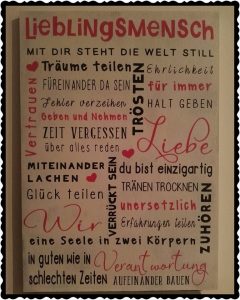 LiEBLiNGSMENSCH
MiT DiR STEHT DiE WELT STiLL
Träume teilen
Ehrlichkeit
Vertrauen
FÜREiNANDER DA SEiN
TRÖSTEN
für immer
Fehler verzeihen
HALT GEBEN
Geben und Nehmen
ZEiT VERGESSEN
Liebe
über alles reden
MiTEiNANDER
LACHEN
VERRÜCKT SEiN
du bist einzigartig
TRÄNEN TROCKNEN
ZUHÖREN
Glück teilen
unersetzlich
Wir
Erfahrungen teilen
eine Seele in zwei Körpern
in guten wie in
schlechten Zeiten
Verantwortung
AUFEiNANDER BAUEN